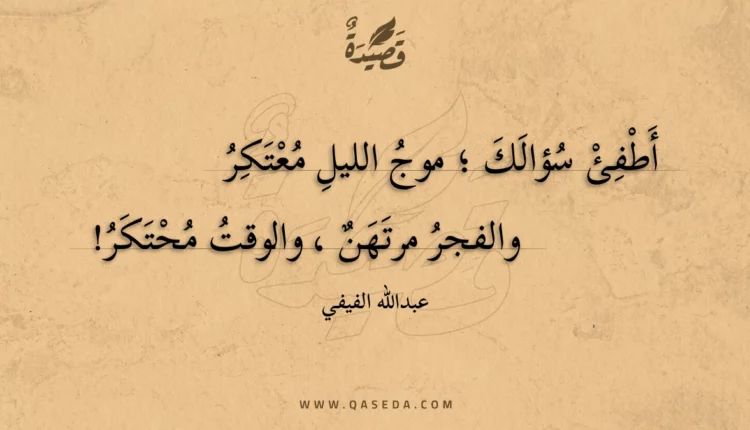 قَصِيْدَةٌ
أَطْفِئْ سُؤالَكَ ؛ موجُ الليلِ مُعْتَكِرُ
والفجرُ مرتَهَنٌ ، والوقتُ مُحْتَكَرُ!
عبدالله الفيفي
WWW.QASEDA.COM